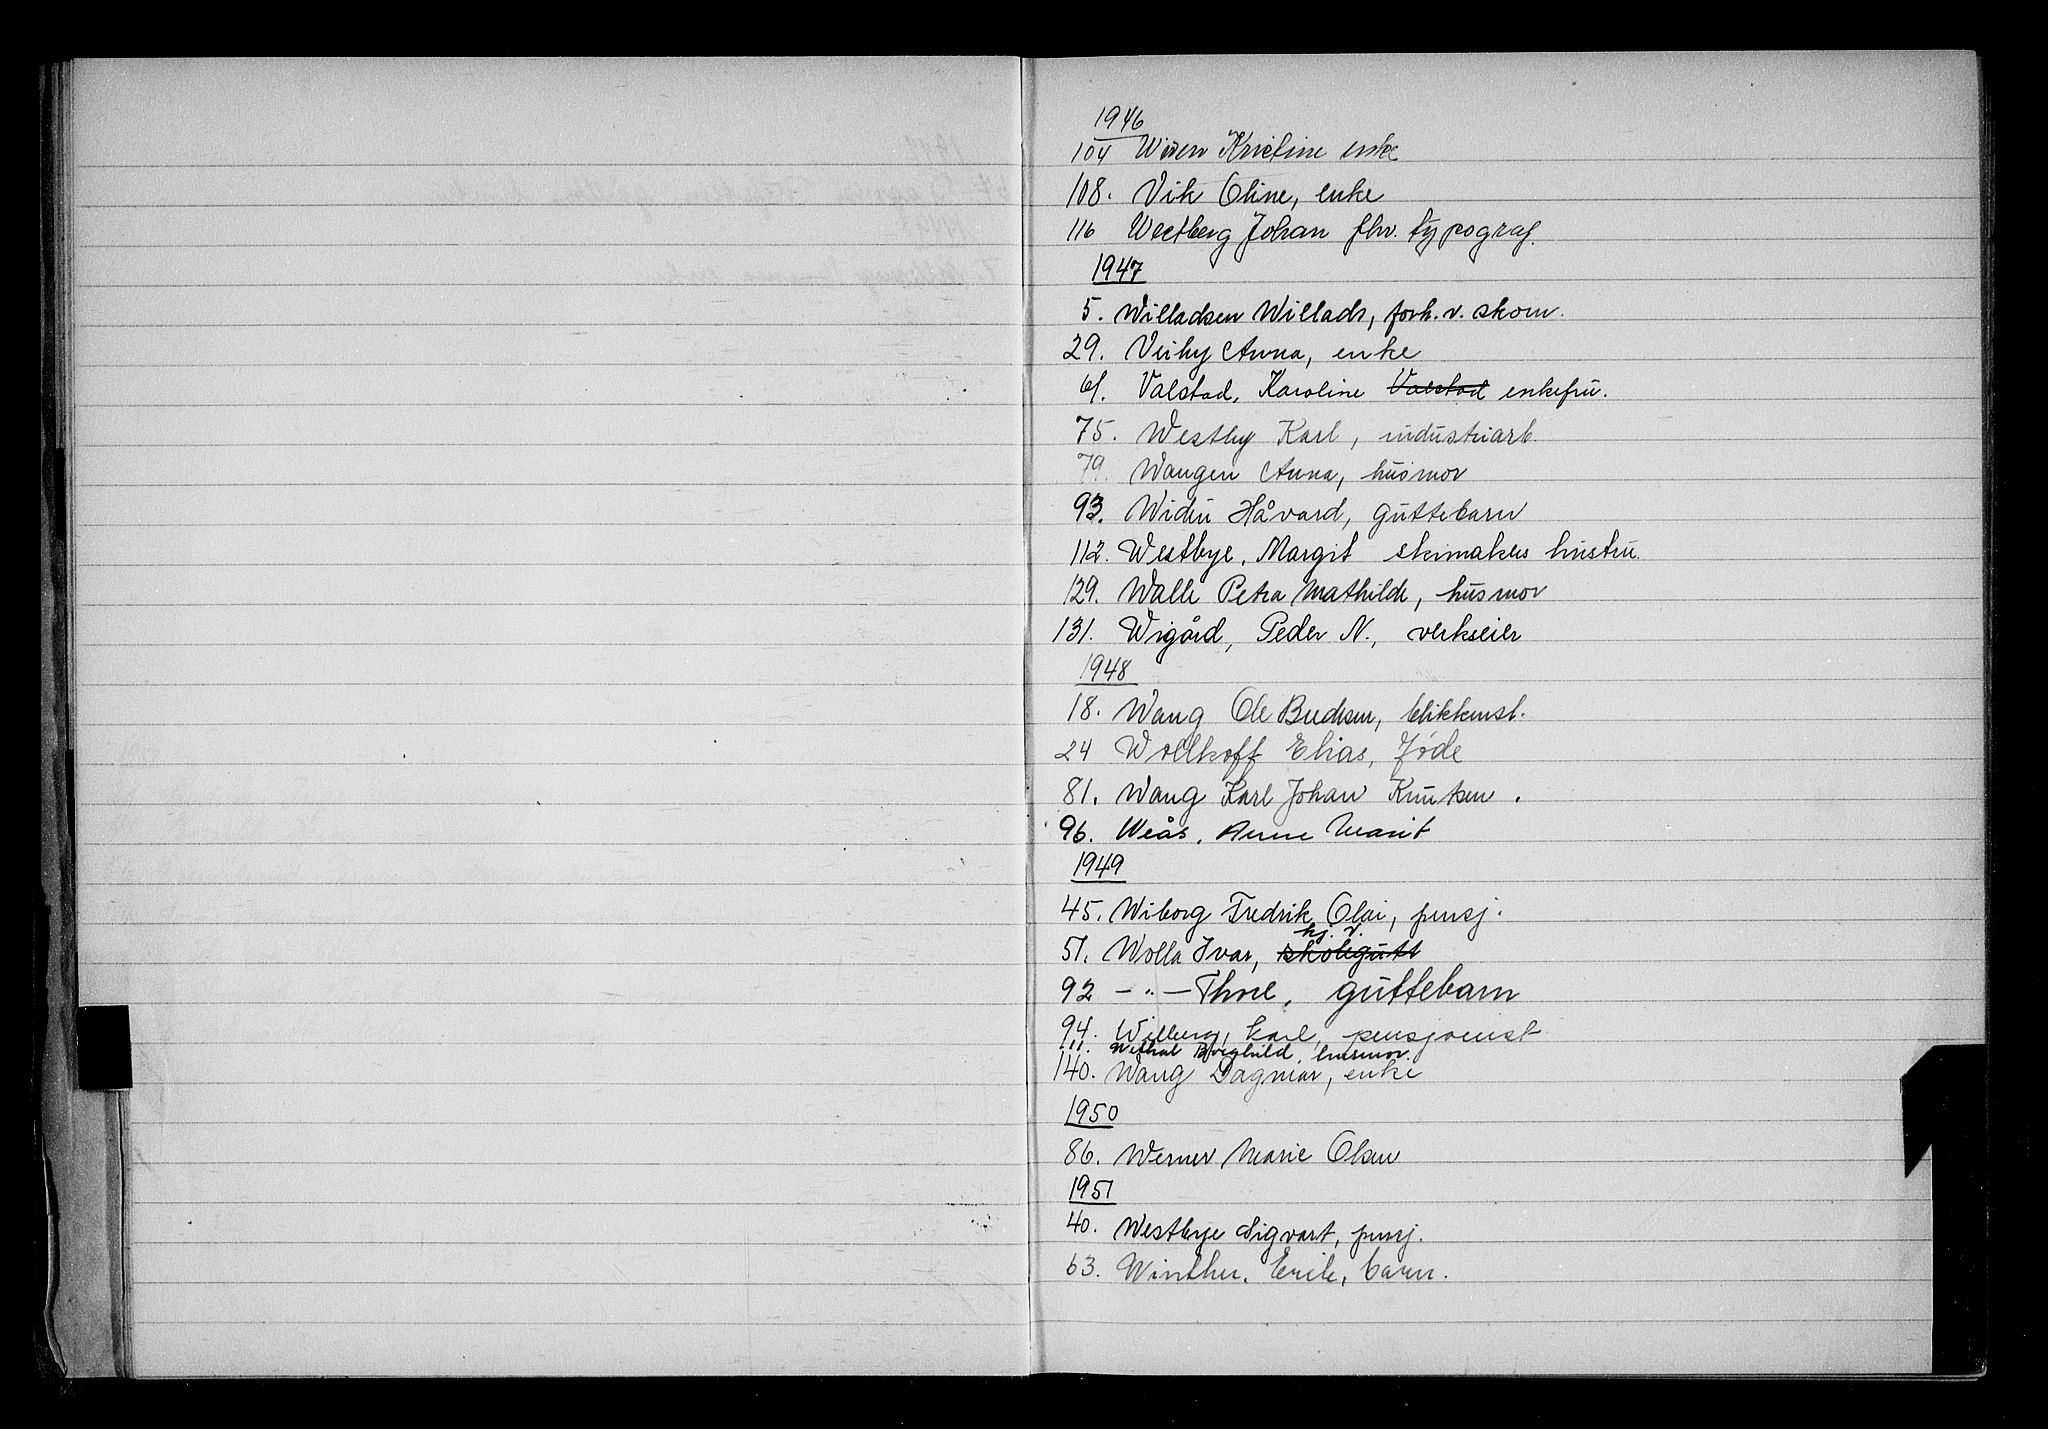 1946
104 Wisen Kristine enke
108. Vik Oline, enke
116 Westberg Johan fhv. typograf.
1947
5. Willadsen Willads, forh. v. skom.
29. Veiby Anna, enke
61. Valstad, Karoline Valstad enkefru.
75. Westby Karl, industriarb
79. Wangen Anna, husmor
93. Widin Håvard, guttebarn
112. Westbye, Margit skimakers hustru.
129. Walle Petra Mathilde, husmor
131. Wigård, Peder N., verkseier
1948
18. Wang Ole Bredesen, blikkensl.
24 Wollkoff Elias, Jøde
81. Wang Karl Johan Knutsen.
96. Weås, Anne Marit
1949
45. Wiborg Fredrik Olai, pensj.
hj. v.
51. Wolla Ivar, skolegutt
92 -"- Thore, guttebarn
94. Wilberg, Karl, pensjonist
111. Borghild, husmor.
140. Wang Dagmar, enke
1950
86. Werner Marie Olsen
1951
40. Westbye Sigvart, pensj.
63. Winther, Erik, barn.